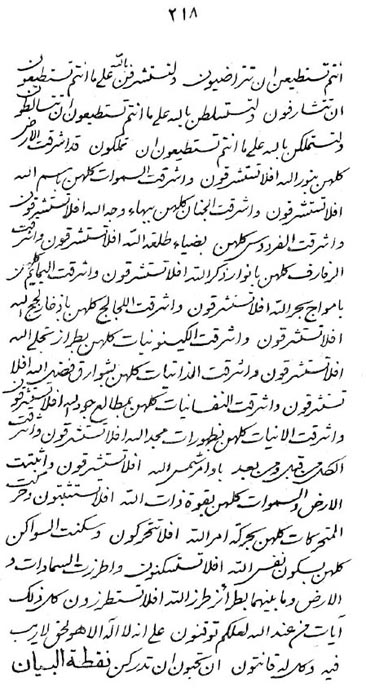 ٢١٨
انتم تستطيعن ان تتراضيون ولتستشرقن بالله على ما انتم تستطيعون
ان تتشارقون ولتستسلطن بالله على ما انتم تستطيعون ان تتسالطون
ولتستملكن بالله على ما انتم تستطيعون ان تملكون قد اشرقت الارض
كلهن بنور الله افلا تستشرقون واشرقت السموات كلهن باسم الله
افلا تستشرقون واشرقت الجنان كلهن ببهاء وجه الله افلا تستشرقون
واشرقت الفردوس كلهن بضياء طلعة الله افلا تستشرقون واشرقت
الرفارف كلهن بانوار ذكر الله افلا تستشرقون واشرقت
بامواج بحر الله افلا تستشرقون واشرقت اللجالج كلهن الله
افلا تستشرقون واشرقت الكينونيات كلهن بطراز تجلي الله
افلا تستشرقون واشرقت الذاتيات كلهن بشوارق الله افلا
تستشرقون واشرقت النفسانيات كلهن بمطالع جود الله افلا تستشرقون
واشرقت الانيات كلهن بظهورات مجد الله افلا تستشرقون واشرقت
الكل من قبل ومن بعد باوامر شمس الله افلا تستشرقون واثبتت
الارض والسموات كلهن بقوة ذات الله افلا تستثبتون وحركت
المتحركات كلهن بحركة امر الله افلا تتحركون وسكنت السواكن
كلهن بسكون نفس الله افلا تستسكنون واطرزت السماوات و
الارض وما بينهما بطرائز طرز الله افلا تستطرزون كل ذلك
آيات من عند الله لعلكم توقنون على انه لا اله الا هو لحق لا ريب
فيه وكل له قانتون ان تحبون ان تدركن نقطة البيان